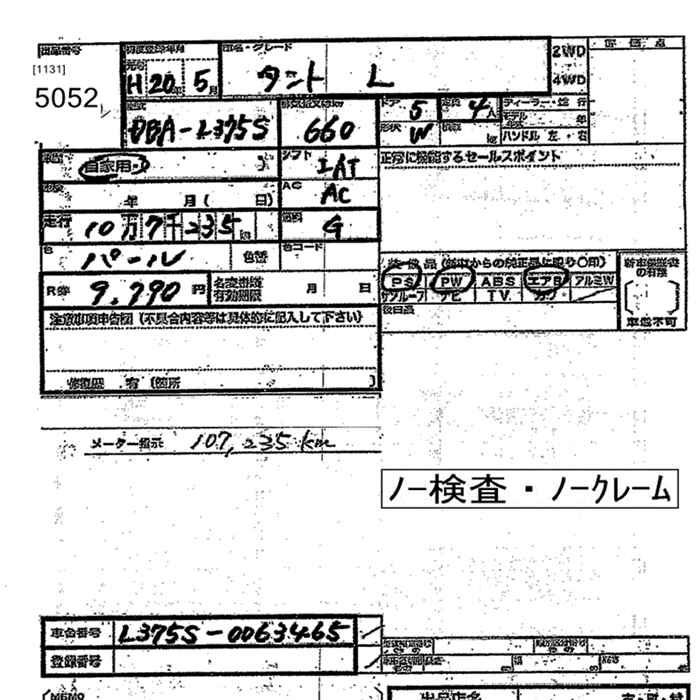 出品番号
[1131]
5052
初度登録年月
H 20年 5月
車名・グレード
タント L
2WD
4WD
評価点
型式
DBA-L375S
660
ドア 5
定員 4人
形状 W
積載 kg
ディーラー・並行
モデル 年
ハンドル 左・右
車歴
自家用
シフト
IAT
正常に機能するセールスポイント
車検
年 月( 日)
AC
AC
走行 10万7千235km
燃料
G
色
パール
色替
色コード
R券 9,790円
名変期限
有効期限
月 日
装備品(新車からの純正品に限り○用)
PS PW ABS エアB アルミW
サンルーフ ナビ TV カワ
後日品
新車保証書の有無
車速不可
注意事項申告図(不具合内容等は具体的に記入して下さい)
修復歴 有(箇所 )
メーター指示 107,235km
ノー検査・ノークレーム
車台番号 L375S-0063465
登録番号
MEMO
出品店名